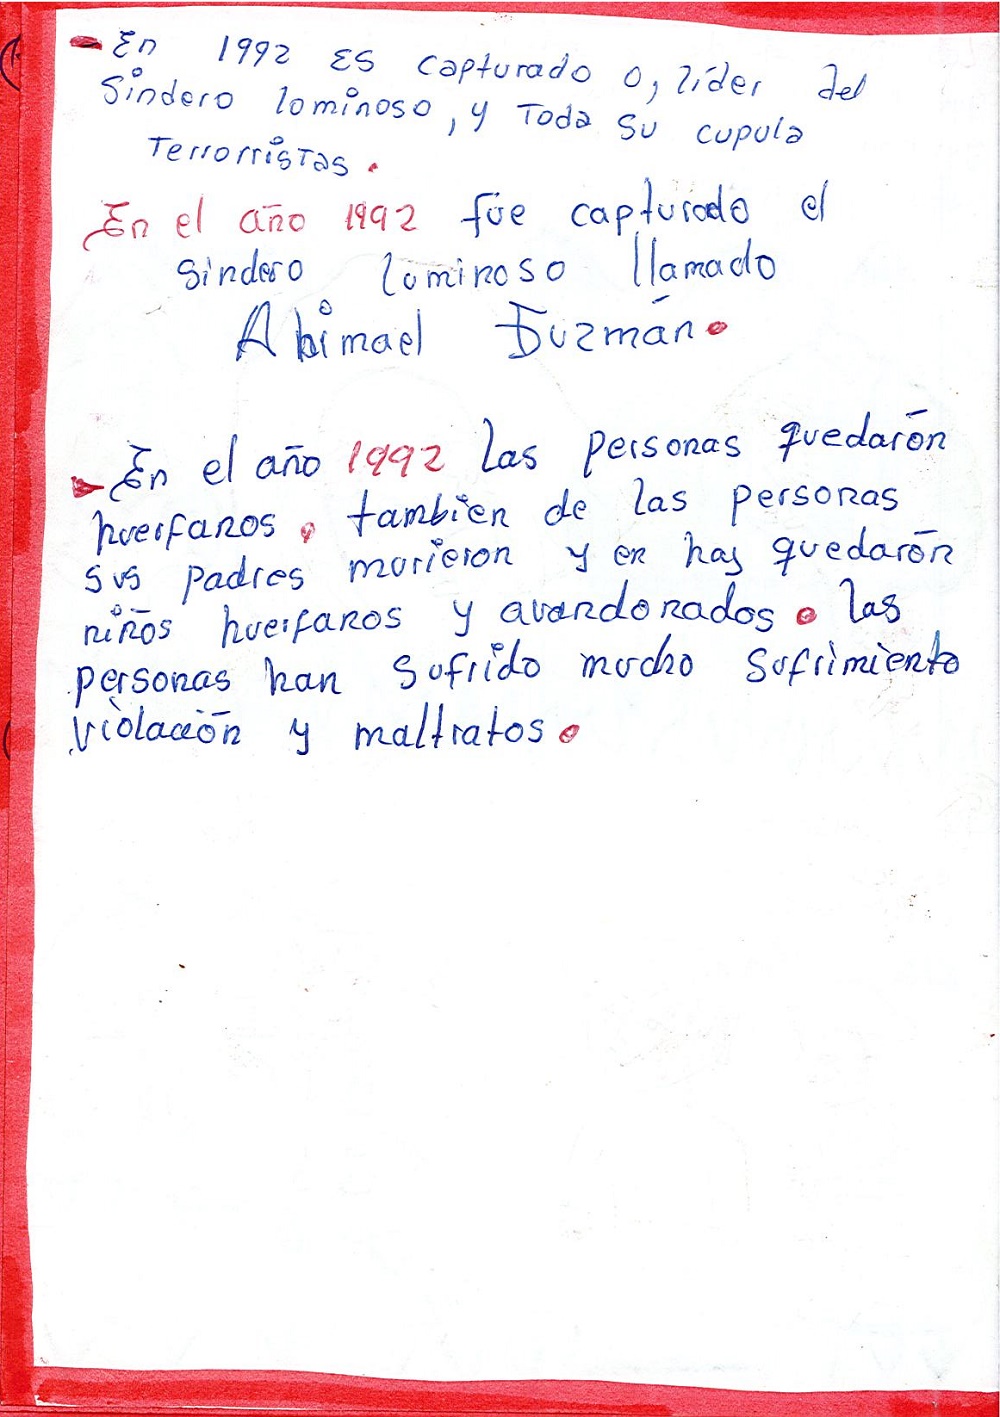 - En 1992 ES capturado o, líder del
Sindero lominoso, y Toda Su cupula
TerrorrisTas.
En el año 1992 fue capturado el
Sindero luminoso llamado
Abimael Guzmán.
- En el año 1992 las personas quedarón
huerfanos. tambien de las personas
sus padres murieron y en hay quedarón
niños huerfanos y avandonados. las
personas han sufrido mucho sufrimiento
violación y maltratos.